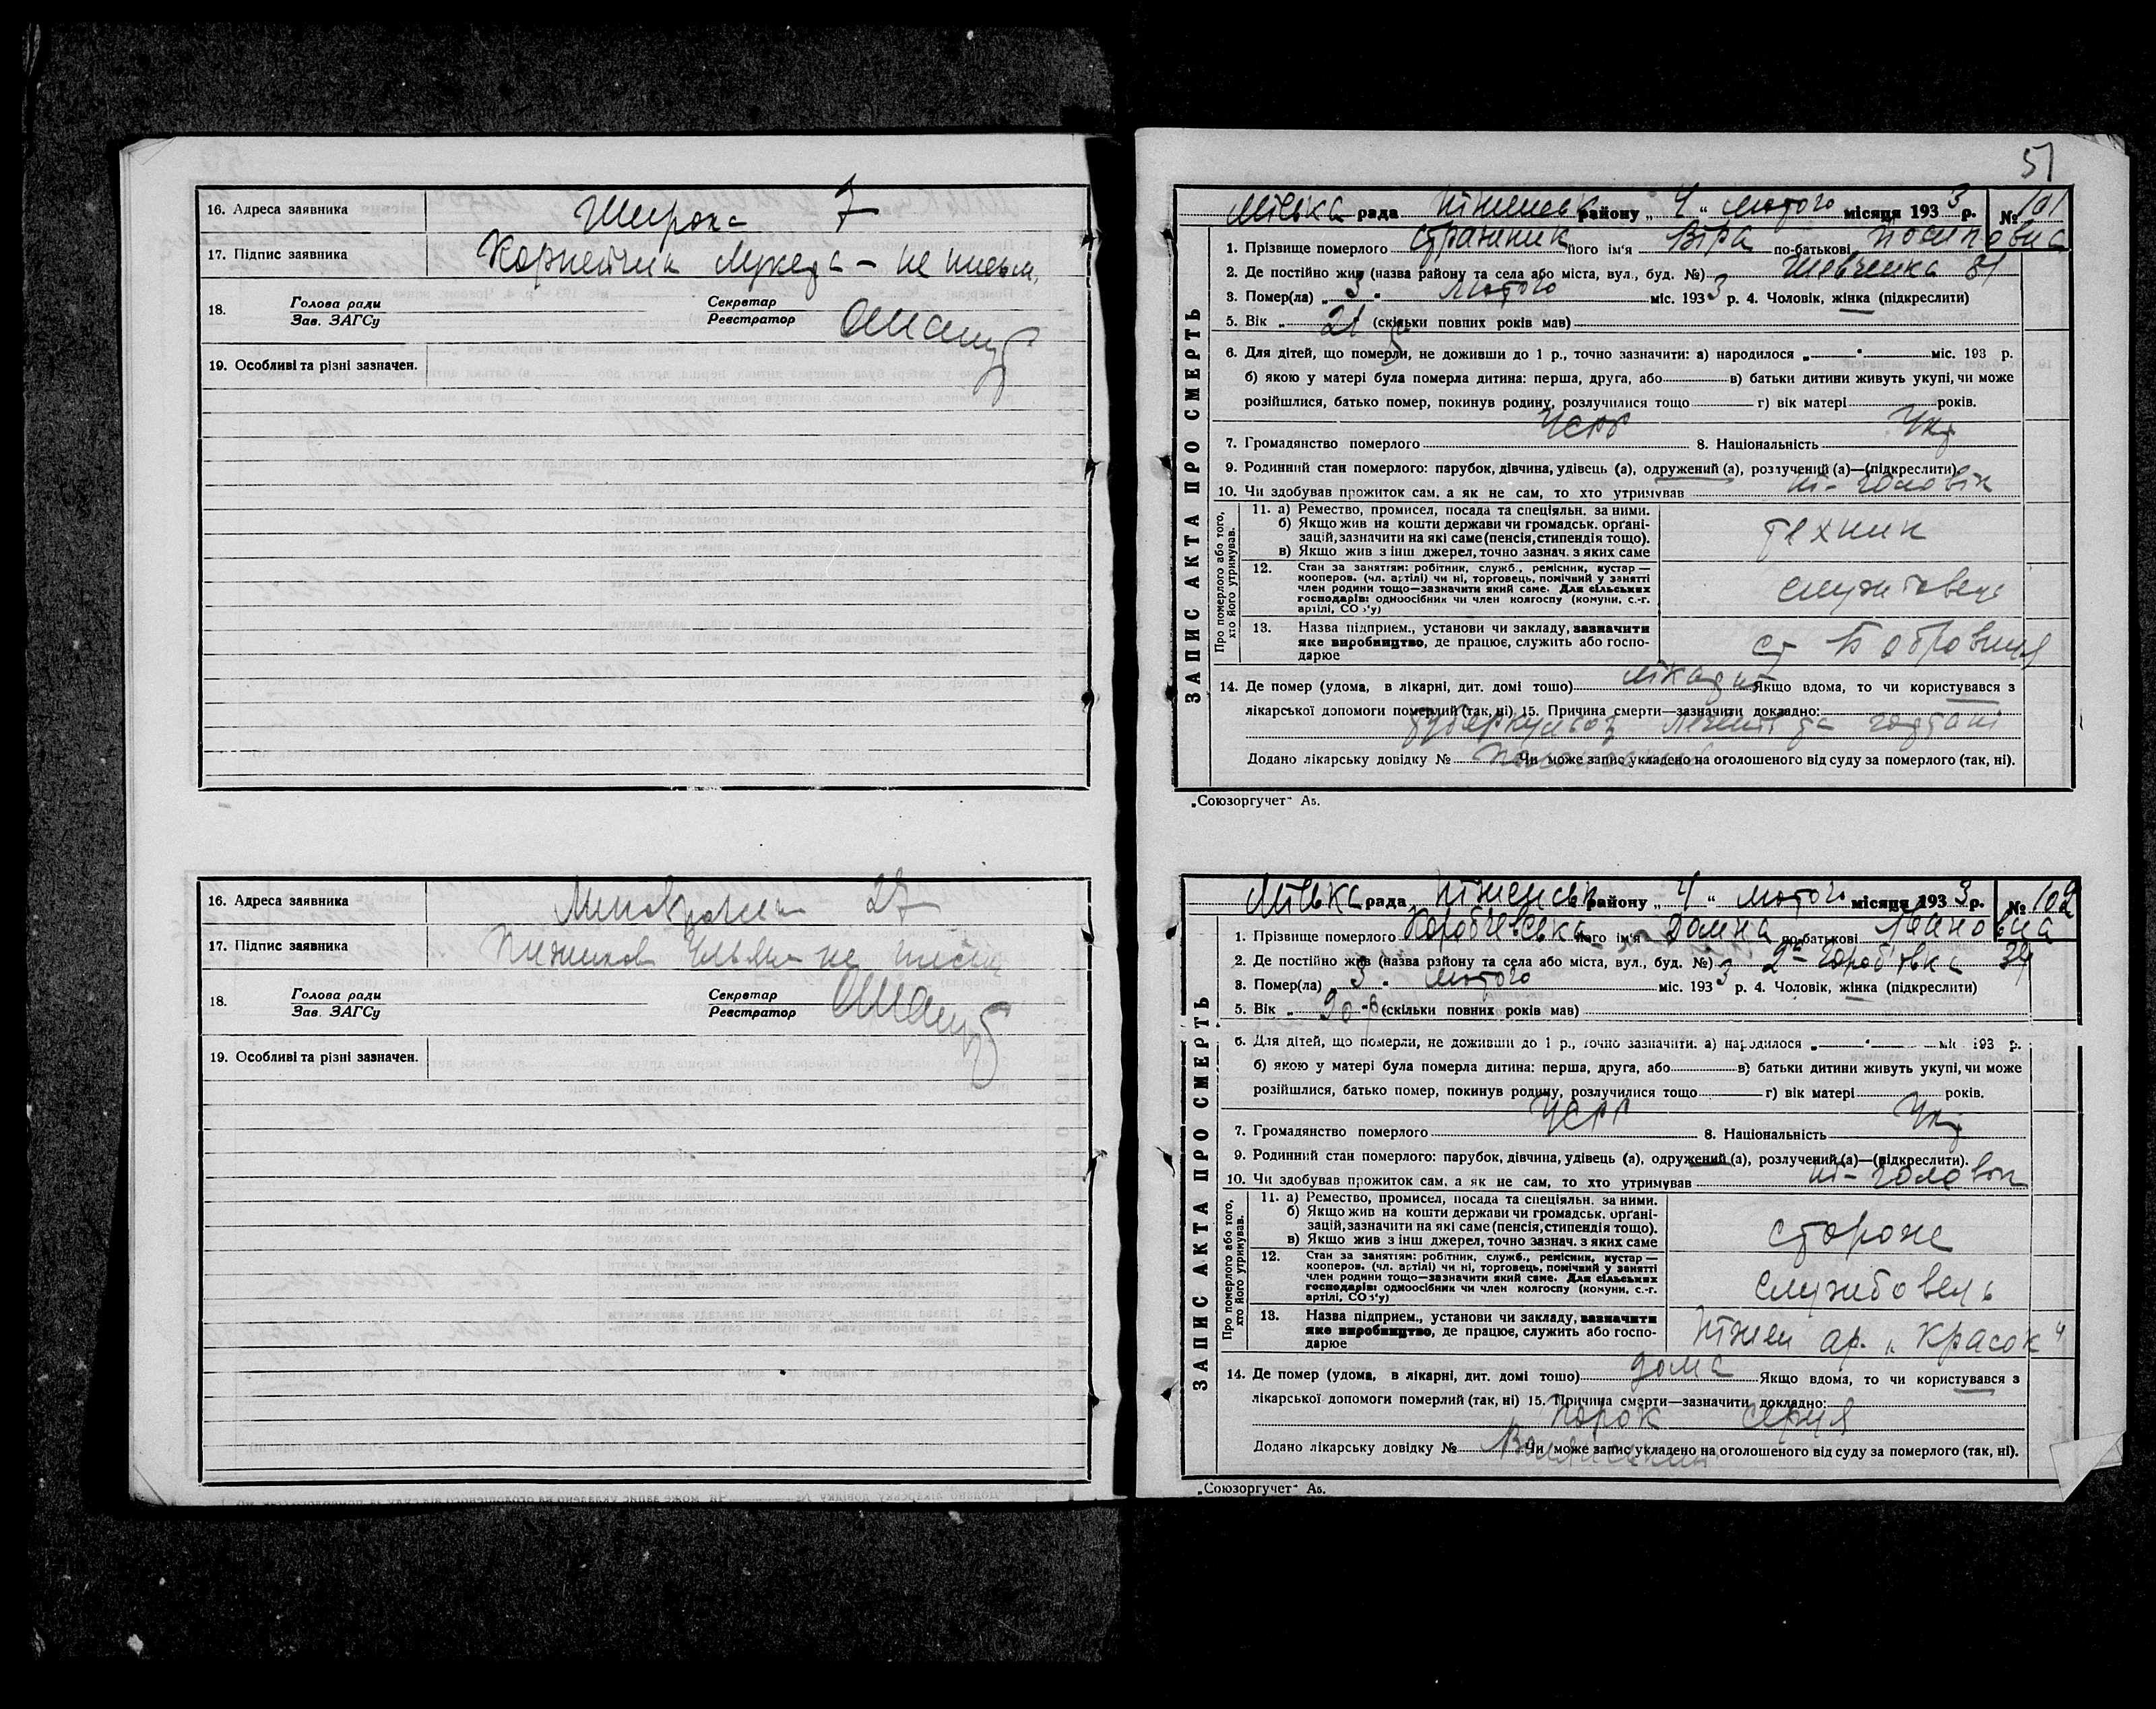 16. Адреса заявника Широка 7
17. Підпис заявника Корнейчик – не письм,
18. Голова ради Секретар
Зав. ЗАГСу Реєстратор
19. Особливі та різні зазначен.
16. Адреса заявника 27
17. Підпис заявника не
18. Голова ради Секретар
Зав. ЗАГСу Реєстратор
19. Особливі та різні зазначен.
51
ЗАПИС АКТА ПРО СМЕРТЬ
Міська рада Ніженськ району „ 4 “ лютого місяця 1933 р. № 101
1. Прізвище померлого Стражник його ім'я Віра по-батькові Йосиповна
2. Де постійно жив (назва району та села або міста, вул., буд. №) Шевченка 81
3. Помер(ла) „ 3 “ лютого міс. 1933 р. 4. Чоловік, жінка (підкреслити)
5. Вік „ 21 р (скільки повних років мав)
6. Для дітей, що померли, не доживши до 1 р., точно зазначити: а) народилося „ “ міс. 193 р.
б) якою у матері була померла дитина: перша, друга, або в) батьки дитини живуть укупі, чи може
розійшлися, батько помер, покинув родину, розлучилися тощо г) вік матері років.
7. Громадянство померлого УСРР 8. Національність Укр
9. Родинний стан померлого: парубок, дівчина, удівець (а), одружений (а), розлучений (а)—(підкреслити).
10. Чи здобував прожиток сам, а як не сам, то хто утримував ні – чоловік
Про померлого або того, хто його утримував.
11. а) Ремество, промисел, посада та спеціяльн. за ними.
б) Якщо жив на кошти держави чи громадськ. орґані-
зацій, зазначити на які саме (пенсія, стипендія тощо).
в) Якщо жив з інш джерел, точно зазнач. з яких саме
технік
12. Стан за заняттям: робітник, служб., ремісник, кустар —
кооперов. (чл. артілі) чи ні, торговець, помічний у занятті
член родини тощо—зазначити який саме. Для сільських
господарів: одноосібник чи член колгоспу (комуни, с.-г.
артілі, СОЗ'у)
службовець
13. Назва підприєм., установи чи закладу, зазначити
яке виробництво, де працює, служить або госпо-
дарює
ст Бобровиця
14. Де помер (удома, в лікарні, дит. домі тошо) Якщо вдома, то чи користувався з
лікарської допомоги померлий (так, ні) 15. Причина смерти—зазначити докладно:
туберкульоз легенів та гортані
Додано лікарську довідку № Чи може запис укладено на оголошеного від суду за померлого (так, ні).
„Союзоргучет“ А5.
ЗАПИС АКТА ПРО СМЕРТЬ
Міська рада Ніженськ району „ 4 “ лютого місяця 1933 р. № 102
1. Прізвище померлого його ім'я Домна по-батькові Івановна
2. Де постійно жив (назва району та села або міста, вул., буд. №) 2га 34
3. Помер(ла) „ 3 “ лютого міс. 1933 р. 4. Чоловік, жінка (підкреслити)
5. Вік „ 90 р (скільки повних років мав)
6. Для дітей, що померли, не доживши до 1 р., точно зазначити: а) народилося „ “ міс 193 р.
б) якою у матері була померла дитина: перша, друга, або в) батьки дитини живуть укупі, чи може
розійшлися, батько помер, покинув родину, розлучилися тощо г) вік матері років.
7. Громадянство померлого УСРР 8. Національність Укр
9. Родинний стан померлого: парубок, дівчина, удівець (а), одружений (а), розлучений (а)—(підкреслити).
10. Чи здобував прожиток сам, а як не сам, то хто утримував ні – чоловік
Про померлого або того, хто його утримував.
11. а) Ремество, промисел, посада та спеціяльн. за ними.
б) Якщо жив на кошти держави чи громадськ. орґані-
зацій, зазначити на які саме (пенсія, стипендія тощо).
в) Якщо жив з інш джерел, точно зазнач. з яких саме
сторож
12. Стан за заняттям: робітник, служб., ремісник, кустар —
кооперов. (чл. артілі) чи ні, торговець, помічний у занятті
член родини тощо—зазначити який саме. Для сільських
господарів: одноосібник чи член колгоспу (комуни, с.-г.
артілі, СОЗ'у)
службовець
13. Назва підприєм., установи чи закладу, зазначити
яке виробництво, де працює, служить або госпо-
дарює
Ніжен ар. „Красок“
14. Де помер (удома, в лікарні, дит. домі тошо) дома Якщо вдома, то чи користувався з
лікарської допомоги померлий (так, ні) 15. Причина смерти—зазначити докладно:
порок серця
Додано лікарську довідку № Чи може запис укладено на оголошеного від суду за померлого (так, ні).
„Союзоргучет“ А5.